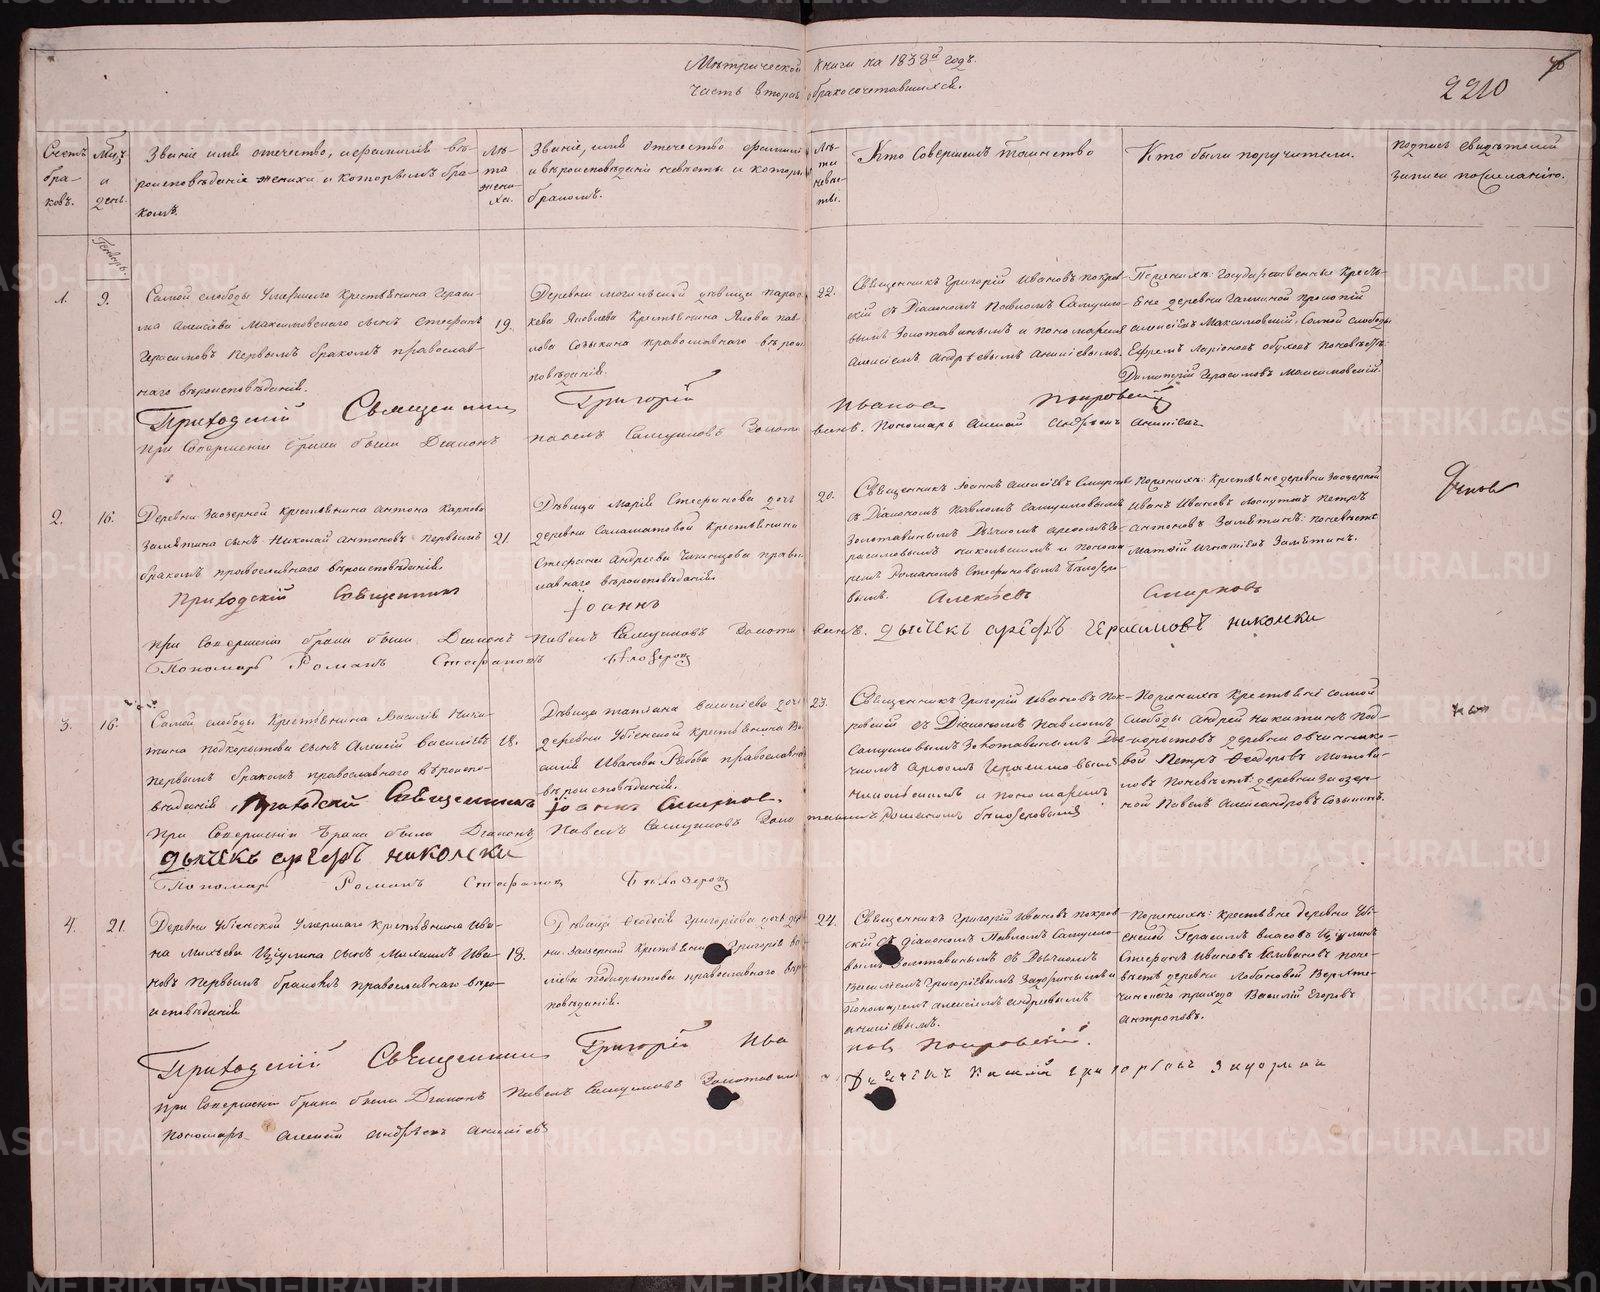 Метрической книги на 1838й годъ.
Часть вторая о бракосочетавшихся.
2210
Счетъ браковъ.
Мѣц. и день.
Званіе имя отечество, и фамилія вѣ-
роисповѣданіе жениха и которымъ бра-
комъ.
Лѣта жениха.
Званіе, имя отечество фамилія
и вѣроисповѣданіе невѣсты и которымъ
бракомъ.
Лѣта невѣсты.
Кто Совершалъ таинство
Кто были поручители.
подпись свидѣтелей
записи по желанію.
Генварь.
1.
9.
Самой слободы Умершаго Крестьянина Гераси-
ма Алексѣева Максимовскаго сынъ Стефанъ
Герасимовъ первымъ бракомъ православ-
наго вѣроисповѣданія.
19.
Деревни могильской дѣвица парас-
кева Яковлева Крестьянина Якова пав-
лова Созыкина православнаго вѣрои-
повѣданія.
22.
Священникъ Григорій Ивановъ покров-
скій съ Діакономъ Павломъ Самуило-
вымъ Золотавинымъ и пономаремъ
Алексѣемъ Андрѣевымъ Аникіевымъ.
По женихѣ: Государственные Кресть-
яне деревни Галкиной прокопій
Алексѣевъ Максимовскій, Самой слободы
Ефремъ Ларіоновъ Обуховъ по невѣстѣ:
Димитрій Герасимовъ Максимовскій.
Приходскій Священникъ Григорій Ивановъ Покровскій
При Совершеніи брака были Діаконъ павелъ Самуиловъ Золотавинъ. Пономарь Алексѣй Андрѣевъ Аникіевъ
2.
16.
Деревни Заозерной крестьянина Антона Карпова
Замятина сынъ Николай Антоновъ первымъ
бракомъ православнаго вѣроисповѣданія.
21.
Дѣвица Марія Стефанова дочь
деревни Саламатовой крестьянина
Стефана Андреева православнаго вѣроисповѣданія
20.
Священникъ Іоаннъ Алексѣевъ Смирновъ
съ Діакономъ Павломъ Самуиловымъ
Золотавинымъ Дьячкомъ Арефомъ Ге-
расимовымъ Никольскимъ и понома-
ремъ Романомъ Стефановымъ Бѣлозеро-
вымъ.
По женихѣ: Крестьяне деревни Заозерной
Иванъ Ивановъ Петръ
Антоновъ Замятинъ: по невѣстѣ
Матвѣй Игнатіевъ Замятинъ.
Приходскій Священникъ Іоаннъ Алексѣевъ Смирновъ
при Совершеніи брака были Діаконъ Павелъ Самуиловъ Золотавинъ. дьячекъ арефъ герасимовъ николски
Пономарь Романъ Стефановъ Бѣлозеровъ
3.
16.
Самой слободы Крестьянина Василія Ники-
тина Подкорытова сынъ Алексѣй Васильевъ
первымъ бракомъ православнаго вѣроиспо-
вѣданія
18.
Дѣвица татіана василіева дочь
деревни Убіенской Крестьянина Ва-
силія Иванова Рябова православнаго
вѣроисповѣданія.
23.
Священникъ Григорій Ивановъ Пок-
ровскій съ Діакономъ Павломъ
Самуиловымъ Золотавинымъ Дья-
чкомъ Арефомъ Герасимовымъ
Никольскимъ и пономаремъ
Романомъ бѣлозеровымъ
По женихѣ Крестьяне самой
слободы Андрей Никитинъ Под-
корытовъ деревни Овчиннико-
вой Петръ Феодоровъ
По невѣстѣ: деревни Заозер-
ной Павелъ Александровъ Созыкинъ.
Приходскій Священникъ Іоаннъ Смирновъ.
При Совершеніи Брака были Діаконъ Павелъ Самуиловъ Золотавинъ
дьячекъ арефъ николски
Пономарь Романъ Стефановъ Бѣлозеровъ
4.
21.
Деревни Убіенской Умершаго Крестьянина Ива-
на Михѣева Ціулина сынъ Михаилъ Ива-
новъ первымъ бракомъ православнаго вѣро-
исповѣданія
18.
Дѣвица Феодосія Григорьева дочь дере-
вни Заозерной Крестьянина Григорія Ва-
силіева Подкорытова православнаго вѣрои-
повѣданія.
24.
Священникъ Григорій Ивановъ покров-
скій съ діакономъ Павломъ Самуило-
вымъ Золотавинымъ съ Дьячкомъ
Василіемъ Григоріевымъ и
Пономаремъ Алексѣемъ Андрѣевымъ
аникіевымъ.
По женихѣ: крестьяне деревни Убі-
енской Герасимъ Власовъ Ціулинъ
Стефанъ Ивановъ по не-
вѣстѣ деревни Лобановой
прихода Василій Егоровъ
Антроповъ.
Приходскій Священникъ Григорій Ивановъ Покровскій.
При Совершеніи Брака были Діаконъ Павелъ Самуиловъ Золотавинъ
пономарь Алексѣй Андрѣевъ Аникіевъ
METRIKI.GASO-URAL.RU